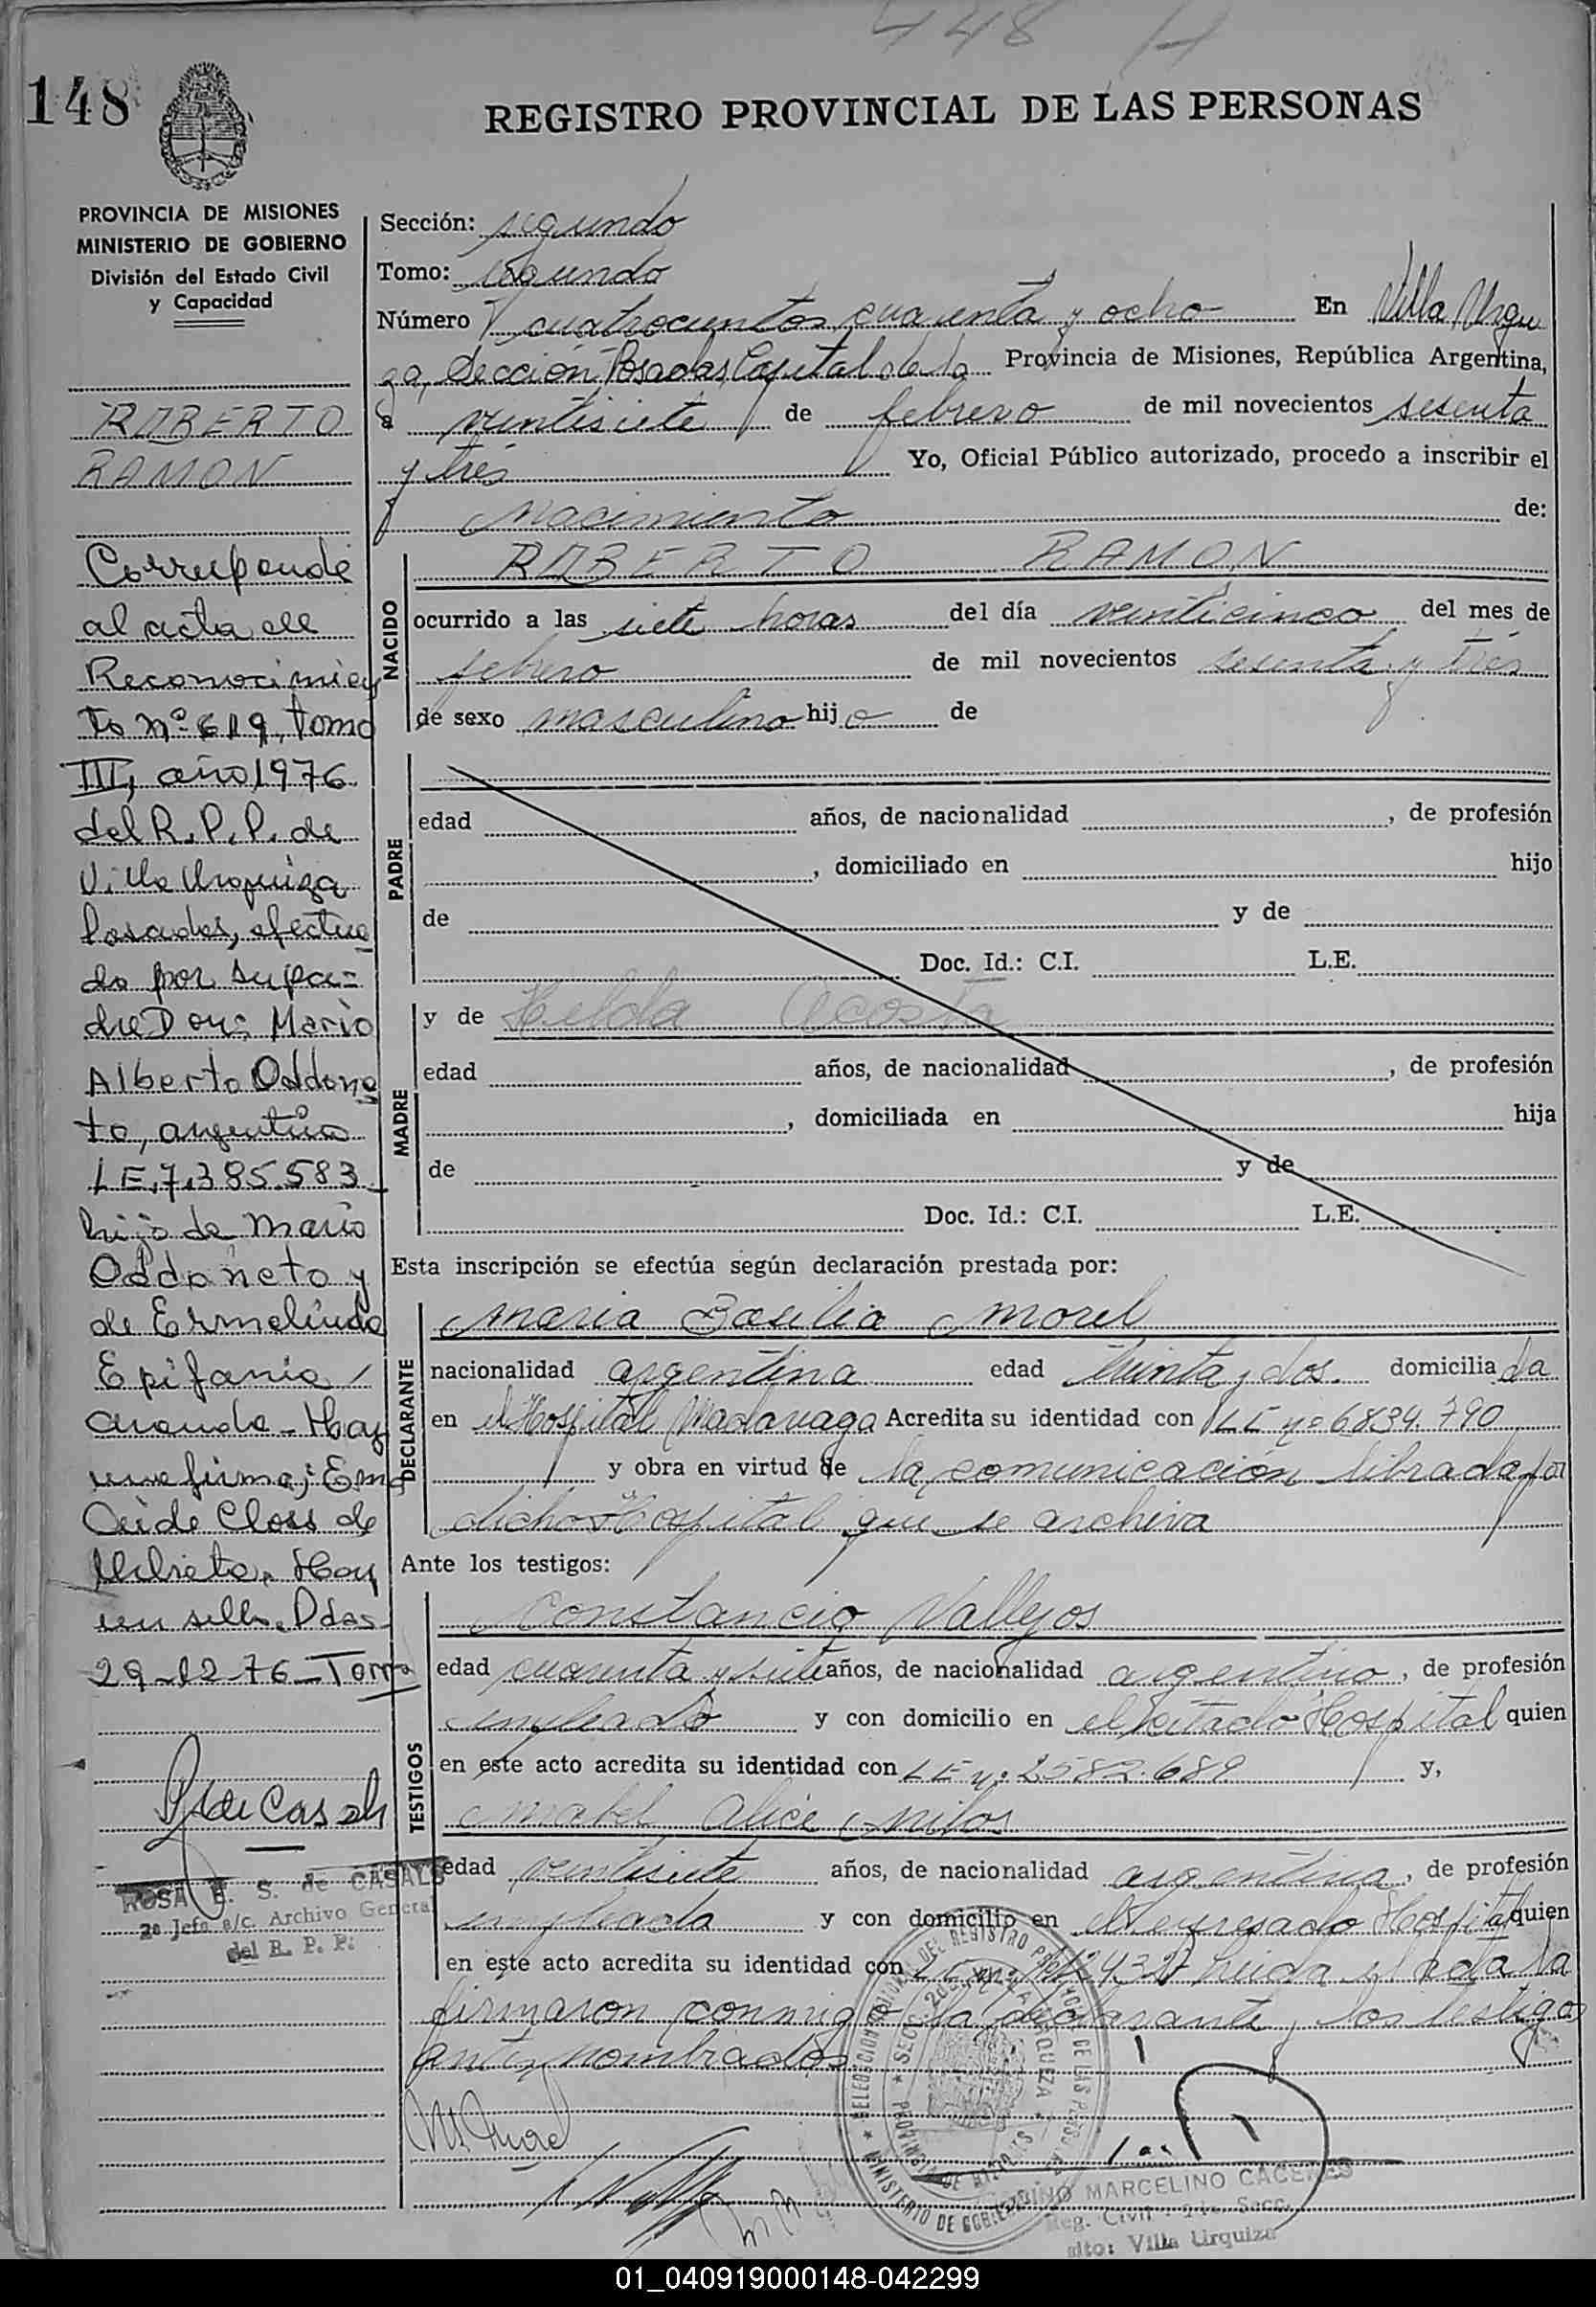 448 H
148
REGISTRO PROVINCIAL DE LAS PERSONAS
PROVINCIA DE MISIONES
MINISTERIO DE GOBIERNO
División del Estado Civil
y Capacidad
ROBERTO
RAMON
Corresponde
al acta de
Reconocimien
to nº 619, tomo
III, año 1976
del R.P.P. de
Villa Urquiza
Posadas, efectua
do por su pa=
dre Don: Mario
Alberto Oddone
to, argentino
LE.7.385.583
hijo de Mario
Oddoneto y
de Ermelinda
Epifania
Aranda - Hay
una firma; Ema
Closs de
Hay
un sello. Pdas
29-12-76-Tomo
R de Casals
ROSA E. S. de CASALS
2º Jefe a/c. Archivo General
del R. P. P.
Sección: segundo
Tomo: segundo
Número cuatrocientos cuarenta y ocho En Villa Urqui
za, Sección Posadas, Capital de la Provincia de Misiones, República Argentina,
a veintisiete de febrero de mil novecientos sesenta
y tres Yo, Oficial Público autorizado, procedo a inscribir el
Nacimiento de:
NACIDO
ROBERTO RAMON
ocurrido a las siete horas del día veinticinco del mes de
febrero de mil novecientos sesenta y tres
de sexo masculino hijo de
PADRE
edad años, de nacionalidad , de profesión
, domiciliado en hijo
de y de
Doc. Id.: C.I. L.E.
MADRE
y de Helda Acosta
edad años, de nacionalidad , de profesión
, domiciliada en hija
de y de
Doc. Id.: C.I. L.E.
Esta inscripción se efectúa según declaración prestada por:
DECLARANTE
Maria Basilia Morel
nacionalidad argentina edad treinta y dos. domiciliada
en el Hospital Madariaga Acredita su identidad con LE nº 6834.790
y obra en virtud de la comunicación librada por
dicho Hospital que se archiva
Ante los testigos:
TESTIGOS
Constancio Vallejos
edad cuarenta y siete años, de nacionalidad argentino, de profesión
empleado y con domicilio en el citado Hospital quien
en este acto acredita su identidad con LE nº 2582.689 y,
Mabel Alice Milos
edad veintisiete años, de nacionalidad argentina, de profesión
empleada y con domicilio en el expresado Hospital quien
en este acto acredita su identidad con Leida el acta la
firmaron conmigo la declarante y los testigos
antes nombrados
M. Morel
DELEGACION DEL REGISTRO PROVINCIAL DE LAS PERSONAS
MINISTERIO DE GOBIERNO
PROVINCIA DE MISIONES
MARCELINO CACERES
Reg. Civil 2da. Secc.
alto: Villa Urquiza
01_040919000148-042299